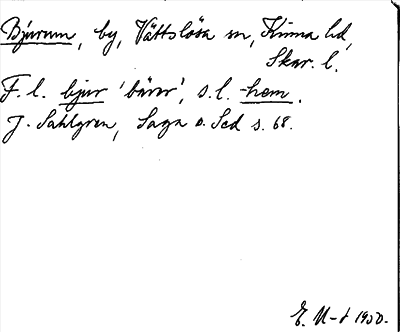 Bjurum, by, Vättlösa sn, Kinne hd,
Skar. l.
F. l. bjur 'bäver', s. l. -hem.
J. Sahlgren, Saga o. Sed s. 68.
E. N-d 1950.